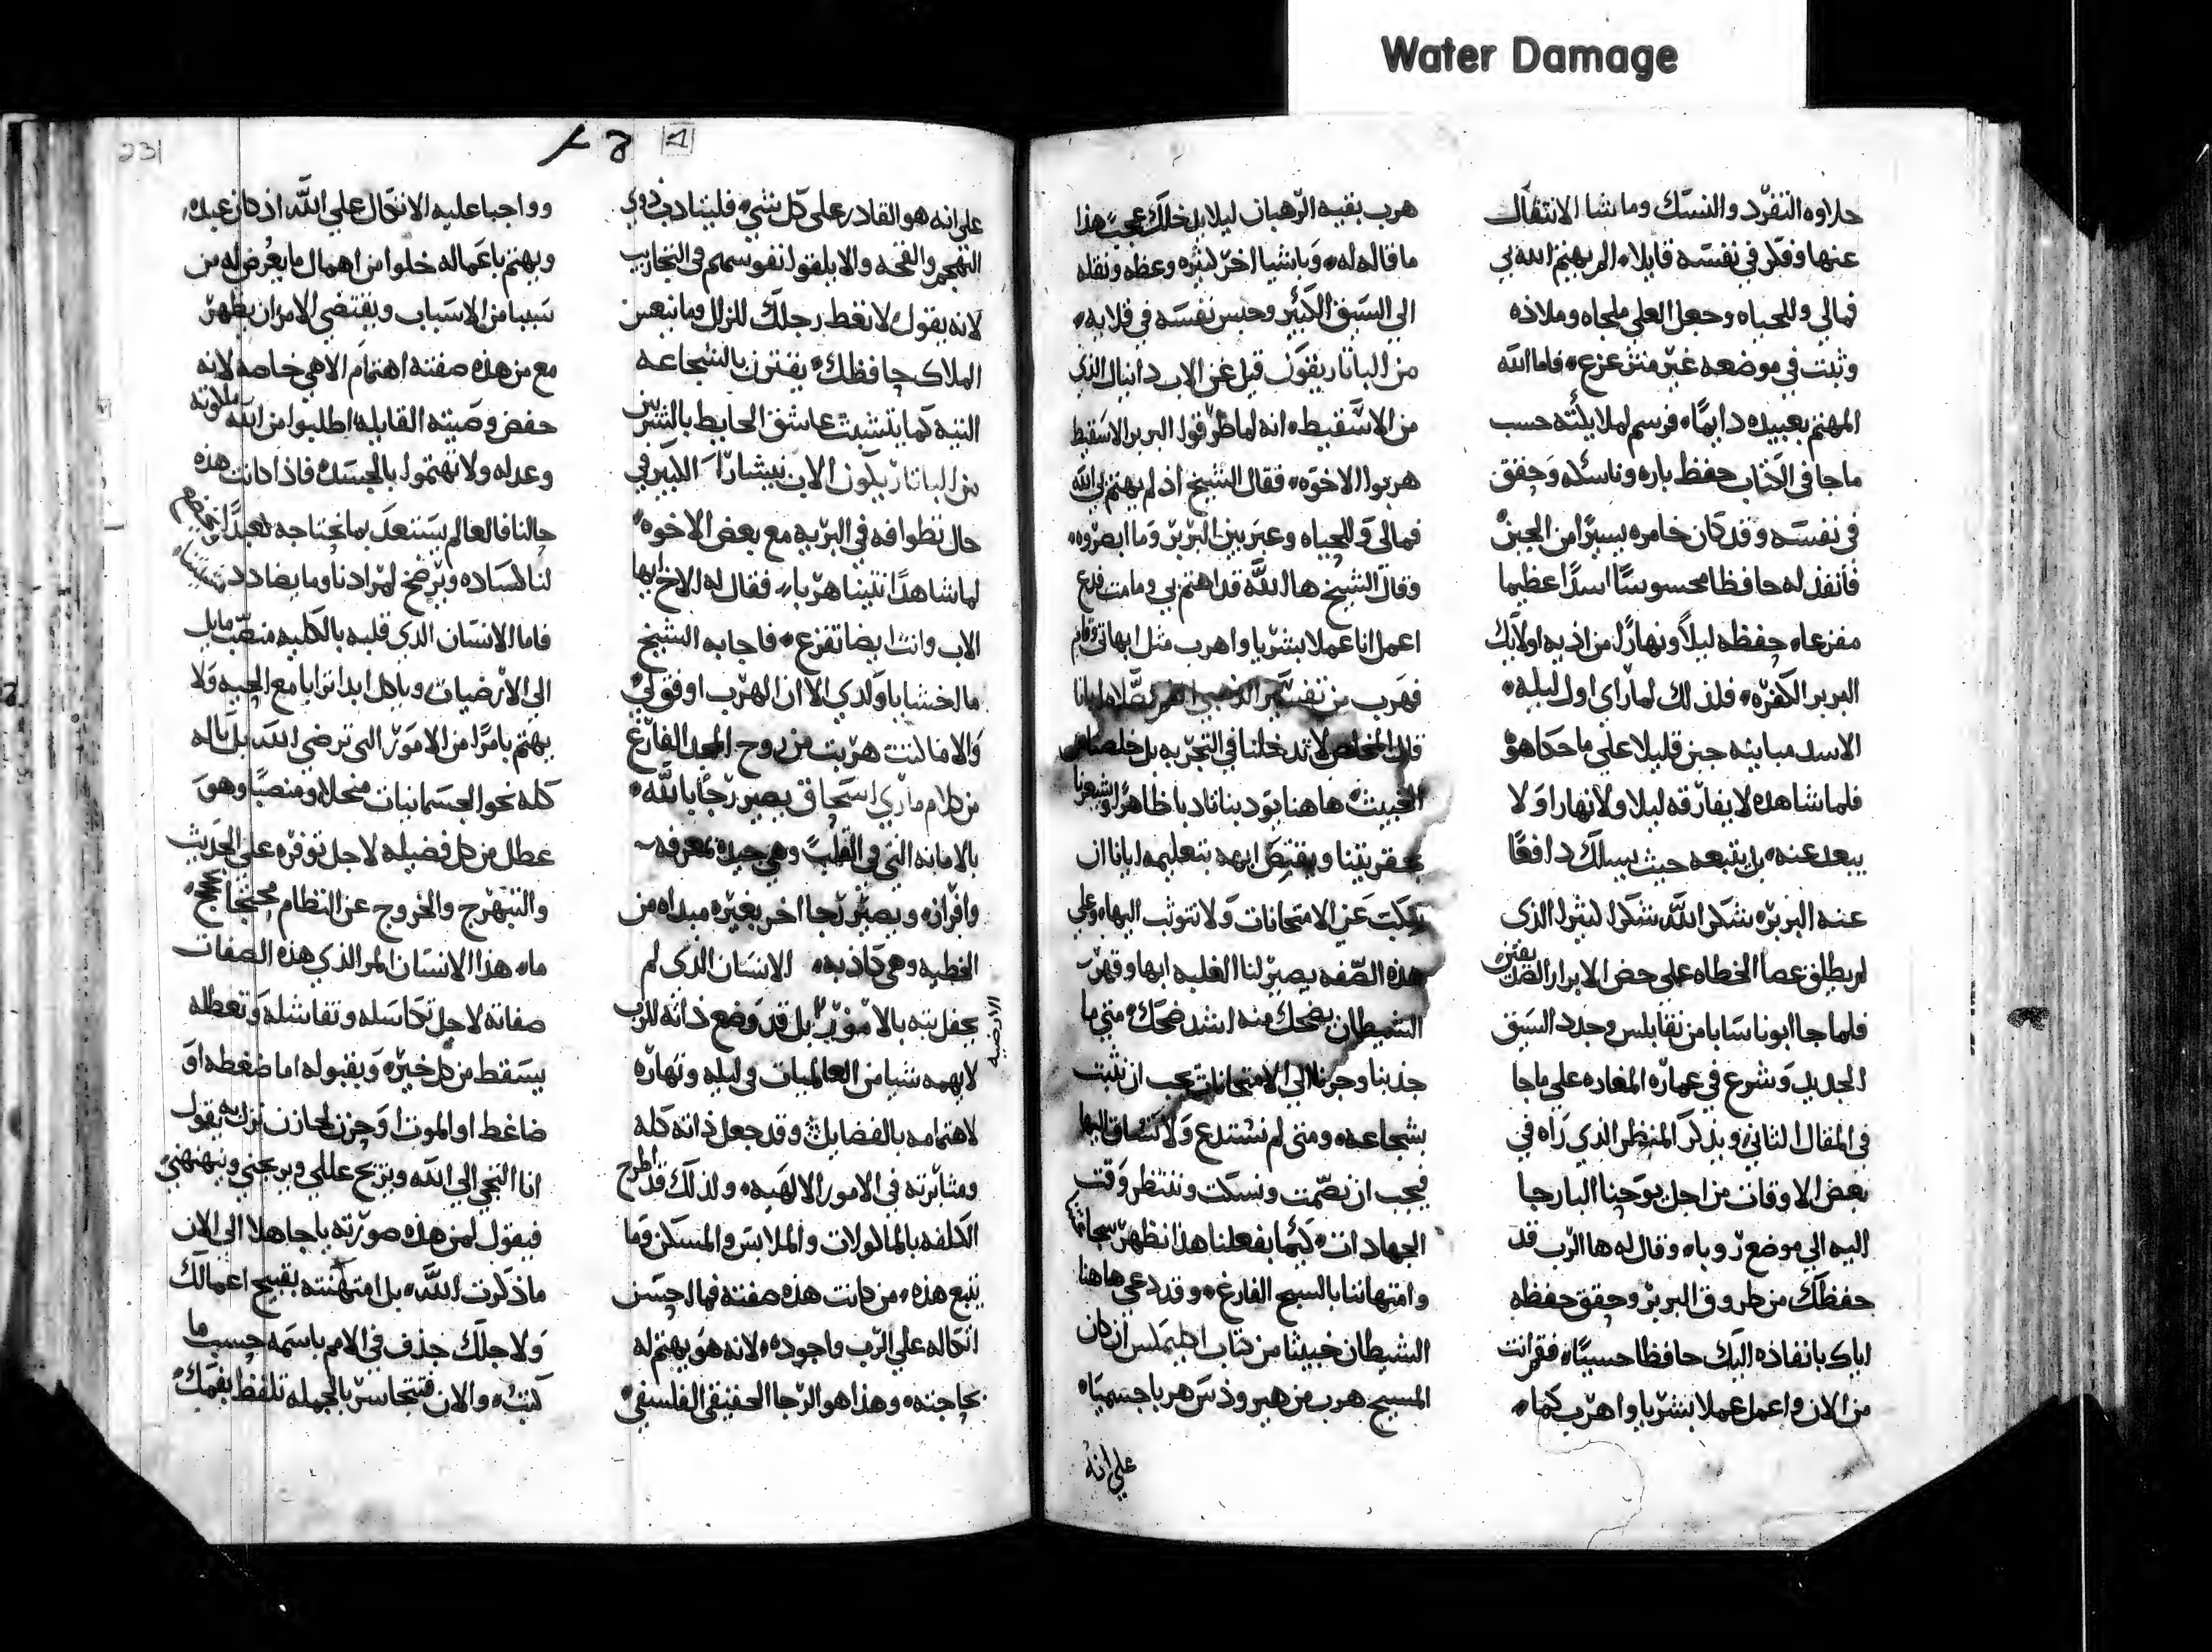 Water Damage
حلاوه التفرد والنسك وماشا الانتقال
عنها وفكر في نفسه قايلا المر يهتم الله بي
فمالي وللحياه وجعل العلي ملجاه وملاذه
وثبت في موضعه غير متزعزع فاما الله
المهتم بعبيده دايمًا فرسم لملايكته حسب
ماجا في الكتاب حفظ باره وناسكه وحقق
في نفسه وقد كان خامره يسيرًا من الجبن
فانفذ له حافظا محسوسًا اسدًا عظيما
مفزعا حفظه ليلًا ونهارًا من اذيه اولايك
البربر الكفره فلذلك لما راى اول ليله
الاسد مباينه جبن قليلا على ما حكاهو
فلما شاهده لا يفارقه ليلا ولا نهارا ولا
يبعد عنه بل يتبعه حيث يسلك دافعًا
عنه البربر شكر الله شكرا كثيرا الذى
لم يطلق عصا الخطاه على حض الابرار
فلما جا ابونا سابا من نقابلس وجدد السيق
الجديد وشرع في عماره المغاره على ماجا
في المقال الثاني وبذكر المنظر الذي راه في
بعض الاوقات من اجل يوحنا البارجا
اليه الى موضع روبا وقال له ها الرب قد
حفظك من طروق البربر وحقق حفظه
اياك بانفاذه اليك حافظا حسيبًا فقم انت
من الان واعمل عملا بشريا واهرب كما
هرب بقيه الرهبان ليلا يدخلك عجب هذا
ما قاله له وباشيا اخر كثيره وعظه ونقله
الي السيق الكبير وحبس نفسه في قلايه
من الباتاريقون قيل عن الاب دانيال الذي
من الاسقيط انه لما طرقوا البربر الاسقيط
هربوا الاخوه فقال الشيخ اذ لم يهتم بي الله
فمالي وللحياه وعبر بين البربر وما ابصروه
وقال الشيخ ها الله قد اهتم بي ومامت فدع
اعمل انا عملا بشريا واهرب مثل ابهاتي
فهرب من تفسير الذهبي
قال المخلص لا تدخلنا في التجربه بل خلصنا من
الخبيث هاهنا يودبنا تاديبا ظاهرًا
بحقريتنا ويقتض ابهه بتعليمه ايانا ان
نهكبت عن الامتحانات ولا نتوثب اليها وعلى
هذه الصفه يصير لنا الغلبه ابها وقهر
الشيطان يضحك منه اشد ضحك متي ما
جذبنا وجرنا الي الامتحانات يجب ان نثبت
بشجاعه ومتى لم نستدع ولا نساق اليها
فيجب ان نصمت ونسكت وننتظر وقت
الجهادات كيما بفعلنا هذا نظهر شجاعتنا
وامتهاننا بالسبح الفارغ وقد دعي هاهنا
الشيطان خبيثا من كتاب اكليمكس ان كان
المسيح هرب من هيرودس هربا جسميا
علي انه
علي انه هو القادر على كل شي فليتادب ذوي
التهجم والقحه والا يلقوا نفوسهم في التجاريب
لانه يقول لا تعط رجلك للزلل وما ينعس
الملاك حافظك يقترن بالشجاعه
التيه كما يتشبث عاشق الحايط بالشربين
من الباتاريكون الاب بيشار الكبير في
حال تطوافه في البريه مع بعض الاخوه
لما شاهدا تنينا هربا فقال له الاخ ايها
الاب وانت ايضا تفزع فاجابه الشيخ
ما اخشا ياولدي الا ان الهرب اوفق لي
والا ما كنت هربت من روح المجد الفارغ
من كلام ماري اسحاق يصير رجًا بالله
بالامانه التي في القلب وهي جيده بمعرفه
وافراز ويصير رجا اخر بغيره مبداه من
الخطيه وهي كاذبه الانسان الذي لم
يحفل بته بالامور الارضيه بل قد وضع ذاته للرب
لا يهمه شيا من العالميات في ليله ونهاره
لاهتمامه بالفضايل وقد جعل ذاته كله
ومثابرته في الامور الالهيه ولذلك قد اطرح
الكلفه بالماكولات والملابس والمسكن وما
يتبع هذه من كانت هذه صفته فما احسن
اتكاله على الرب واجوده لانه هو يهتم له
بحاجته وهذا هو الرجا الحقيقي الفلسفي
231
وواجبا عليه الاتكال علي الله اذ كان عبده
ويهتم باعماله خلوا من اهمال ما يعرض له من
سببا من الاسباب ويقتضي الامر ان يظهر
مع من هذه صفته اهتمام الاهي خاصه لانه
حفض وصيته القايله اطلبوا من الله ملكوته
وعدله ولا تهتموا بالجسد فاذا كانت هذه
حالنا فالعالم يستعد بما نحتاجه
لنا كساده ويرضخ لمرادنا وما يضادد
فاما الانسان الذي قلبه بالكليه منصب مايل
الي الارضيات وياكل ابدا ترابا مع الحيه ولا
يهتم بامرًا من الامور التي ترضي الله بل باله
كله نحو الجسمانيات منحلا ومنصبا وهو
عطل من كل فضيله لاجل توفره على الحديث
والتبهرج والخروج عن النظام محتجا بحجج
ما هذا الانسان المر الذي هذه الصفات
صفاته لاجل تكاسله وتفاشله وتعطله
يسقط من كل خيره ويقبوله اما ضغطه او
ضاغط او الموت او حزن لحازن نزل به يقول
انا التجي الي الله ويزيح عللي ويريحني وينهنهني
فيقول لمن هذه صورته ياجاهلا الى الان
ماذكرت الله بل امتهنته بقبيح اعمالك
ولاجلك جدف في الامم باسمه حسب ما
كتب والان فتتجاسر بالجمله تلفظ بفمك